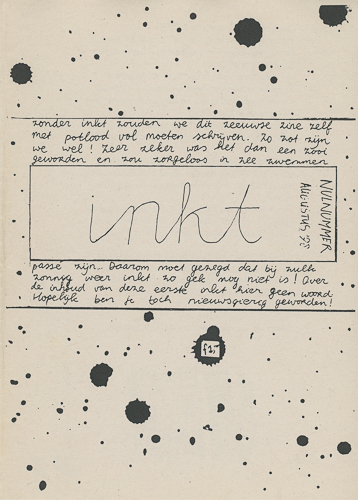 zonder inkt zouden we dit zeeuwse zine zelf
met potlood vol moeten schrijven. Zo zot zijn
we wel! Zeer zeker was het dan een zooi
geworden en zou zorgeloos in zee zwemmen
inkt
NULNUMMER
AUGUSTUS '78
passé zijn.. Daarom moet gezegd dat bij zulk
zonnig weer inkt zo gek nog niet is! Over
de inhoud van deze eerste inkt hier geen woord
Hopelijk ben je toch nieuwsgierig geworden!
f1,-